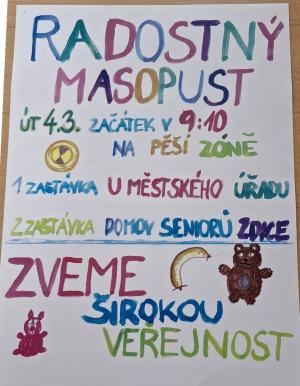 RADOSTNÝ
MASOPUST
ÚT 4.3. ZAČÁTEK V 9:10
NA PĚŠÍ ZÓNĚ
1 ZASTÁVKA U MĚSTSKÉHO ÚŘADU
2 ZASTÁVKA DOMOV SENIORŮ ZDICE
ZVEME
ŠIROKOU
VEŘEJNOST